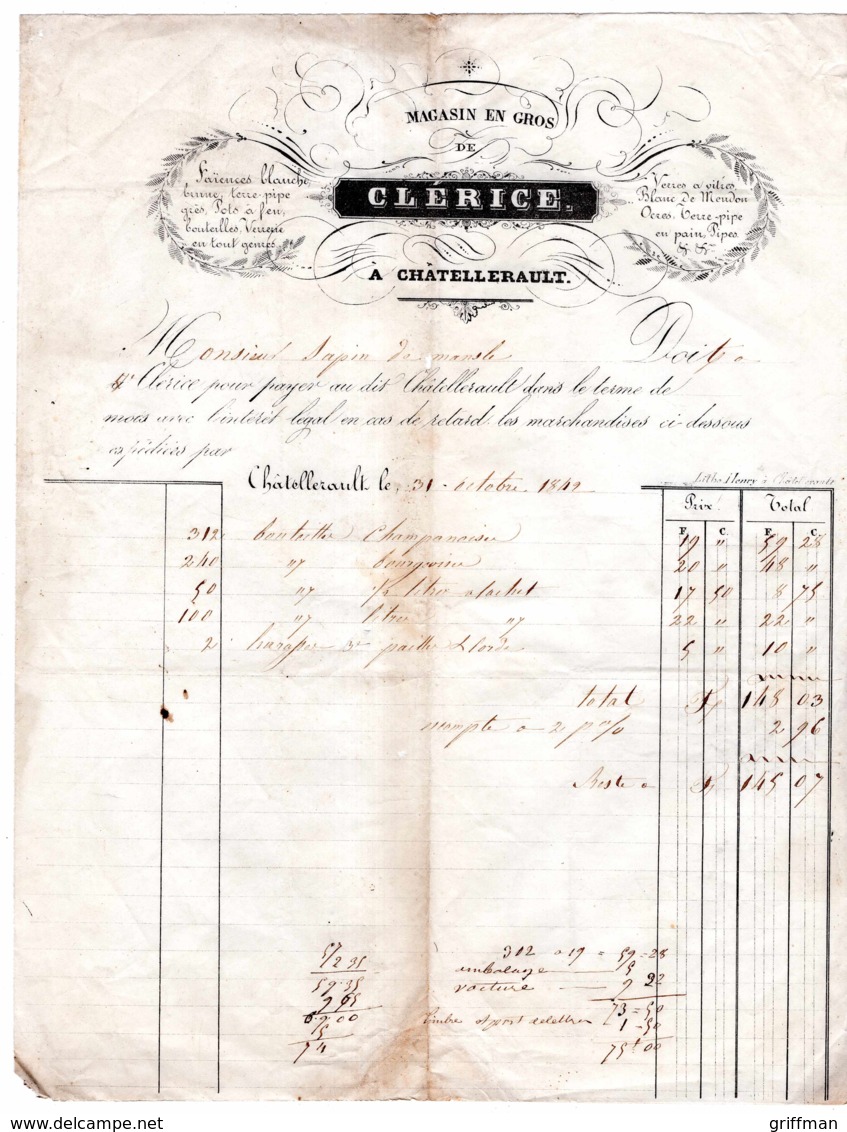 MAGASIN EN GROS
DE
CLÉRICE.
À CHÂTELLERAULT.
Faïences blanche,
brune, terre-pipe
grès, Pots à feu,
bouteilles, Verrerie
en tout genres.
Verres a vitres
Blanc de Meudon
Ocres. Terre-pipe
en pain, Pipes.
&. &.
Monsieur Sapin de mansle Doit a
Clérice pour payer au dit Châtellerault dans le terme de
mois avec l'intérêt légal en cas de retard les marchandises ci-dessous
expédiées par
Litho. Henry à Châtellerault
Châtellerault le, 31 - octobre 1842
Prix Total
F. C. F. C.
312 bouteilles Champenoises 19 " 59 28
240 " bourguine 20 " 48 "
50 " 1/2 litres a cachet 17 50 8 75
100 " litres " 22 " 22 "
2 paille & Corde 5 " 10 "
total F 148 03
escompte a 2 p % 2 96
Reste a F 145 07
57
2 35
59.35
9 65
69 00
5
74
312 a 19 = 59-28
embalage 5
voiture 9 22
73=50
timbre et port de lettres 1-50
75 f 00
www.delcampe.net
griffman